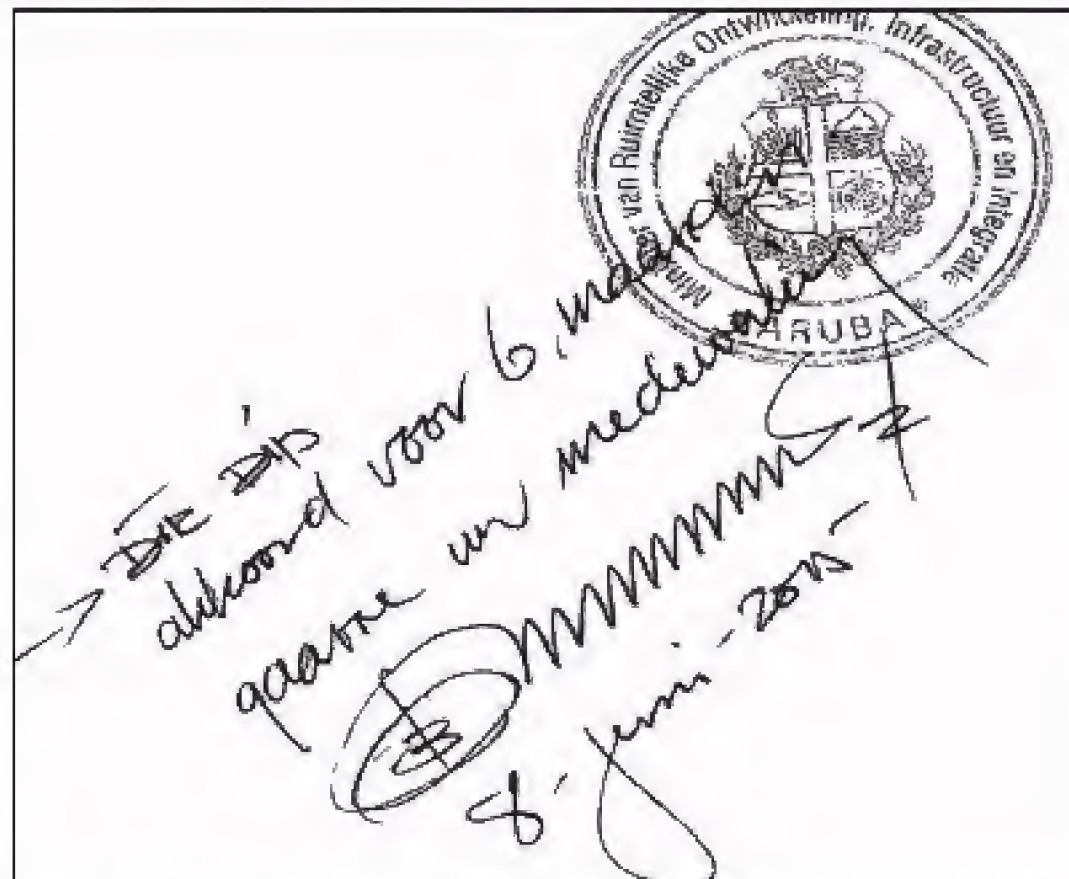 Minister van Ruimtelijke Ontwikkeling, Infrastructuur en Integratie
ARUBA
→ DIE DIP
akkoord voor 6 maanden
gaarne uw medewerking
8 - juni - 2015